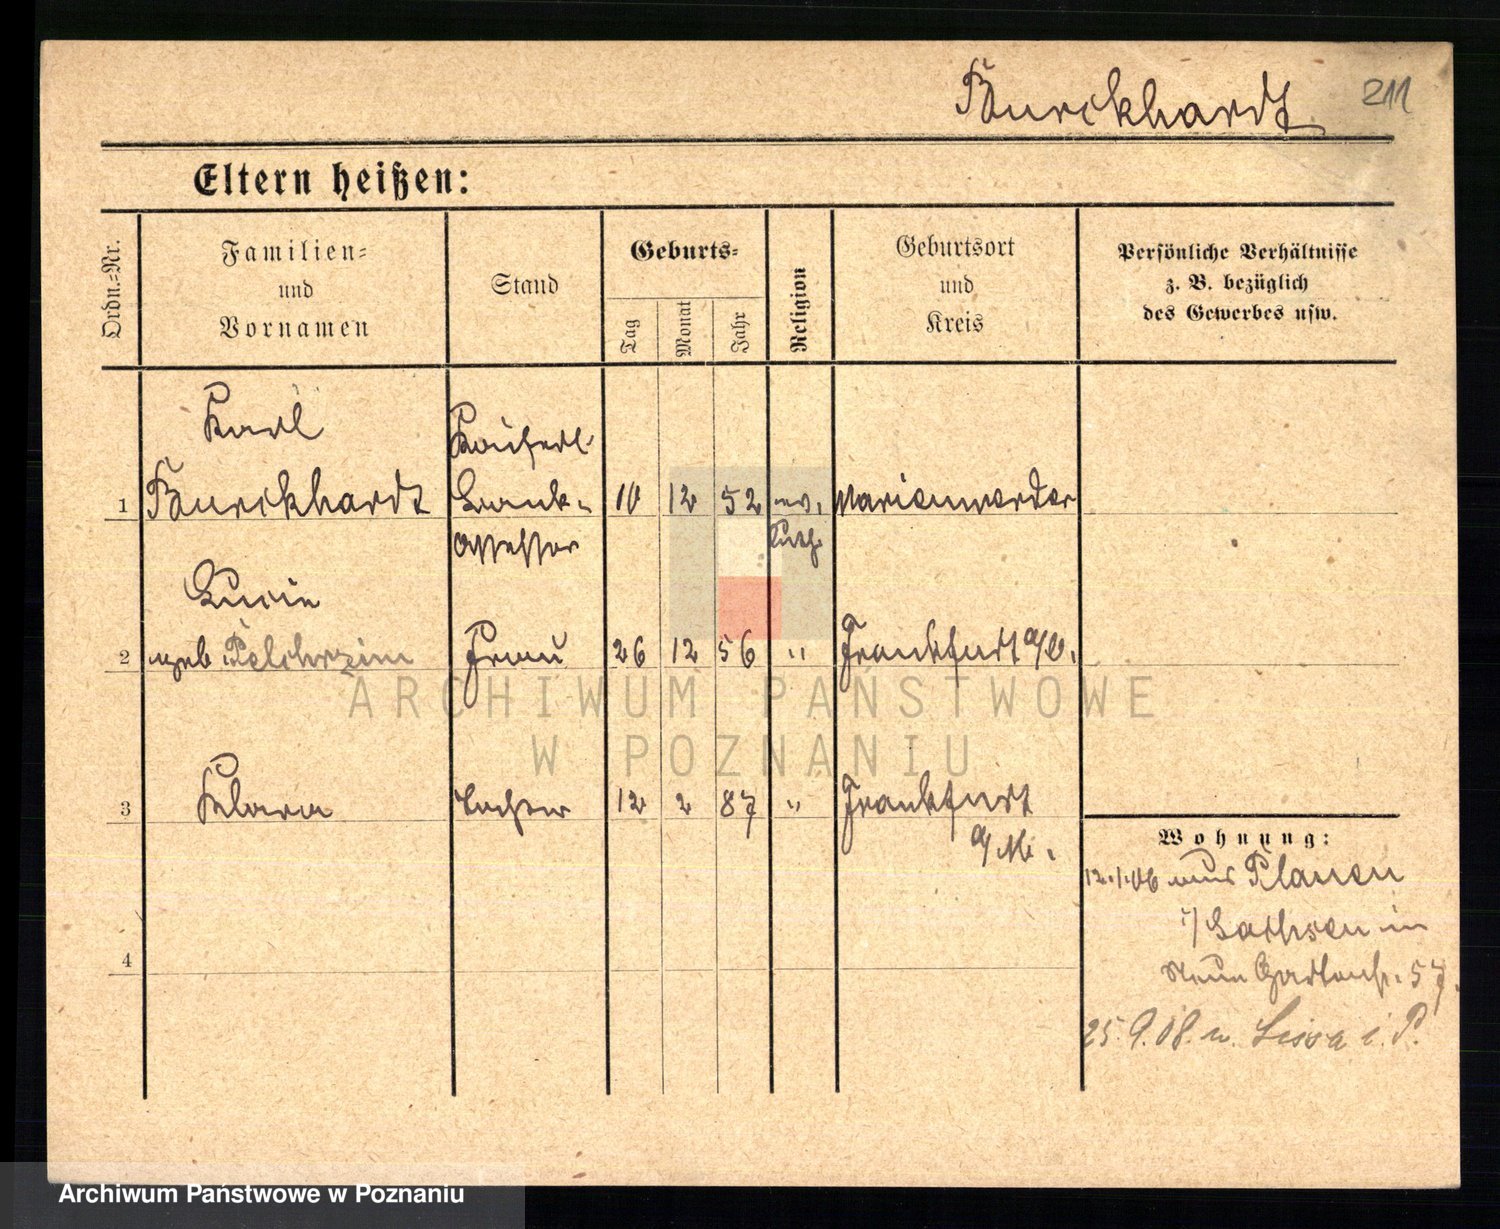 Burckhardt 211
Eltern heißen:
Ordn.-Nr.
Familien-
und
Vornamen
Stand
Geburts-
Tag
Monat
Jahr
Religion
Geburtsort
und
Kreis
Persönliche Verhältnisse
z. B. bezüglich
des Gewerbes usw.
Karl
Kaiserl.
1 Burckhardt Bank- 10 12 52 ev. Marienwerder
assessor luth.
Lucie
2 geb Pelchrzim Frau 26 12 56 " Frankfurt a/O.
ARCHIWUM PAŃSTWOWE
W POZNANIU
3 Klara Tochter 12 2 87 " Frankfurt
a/M.
Wohnung:
12.1.06 aus Plauen
i/ Sachsen in
Neue Gartenstr. 57.
4
25.9.08. n. Lissa i. P.
Archiwum Państwowe w Poznaniu